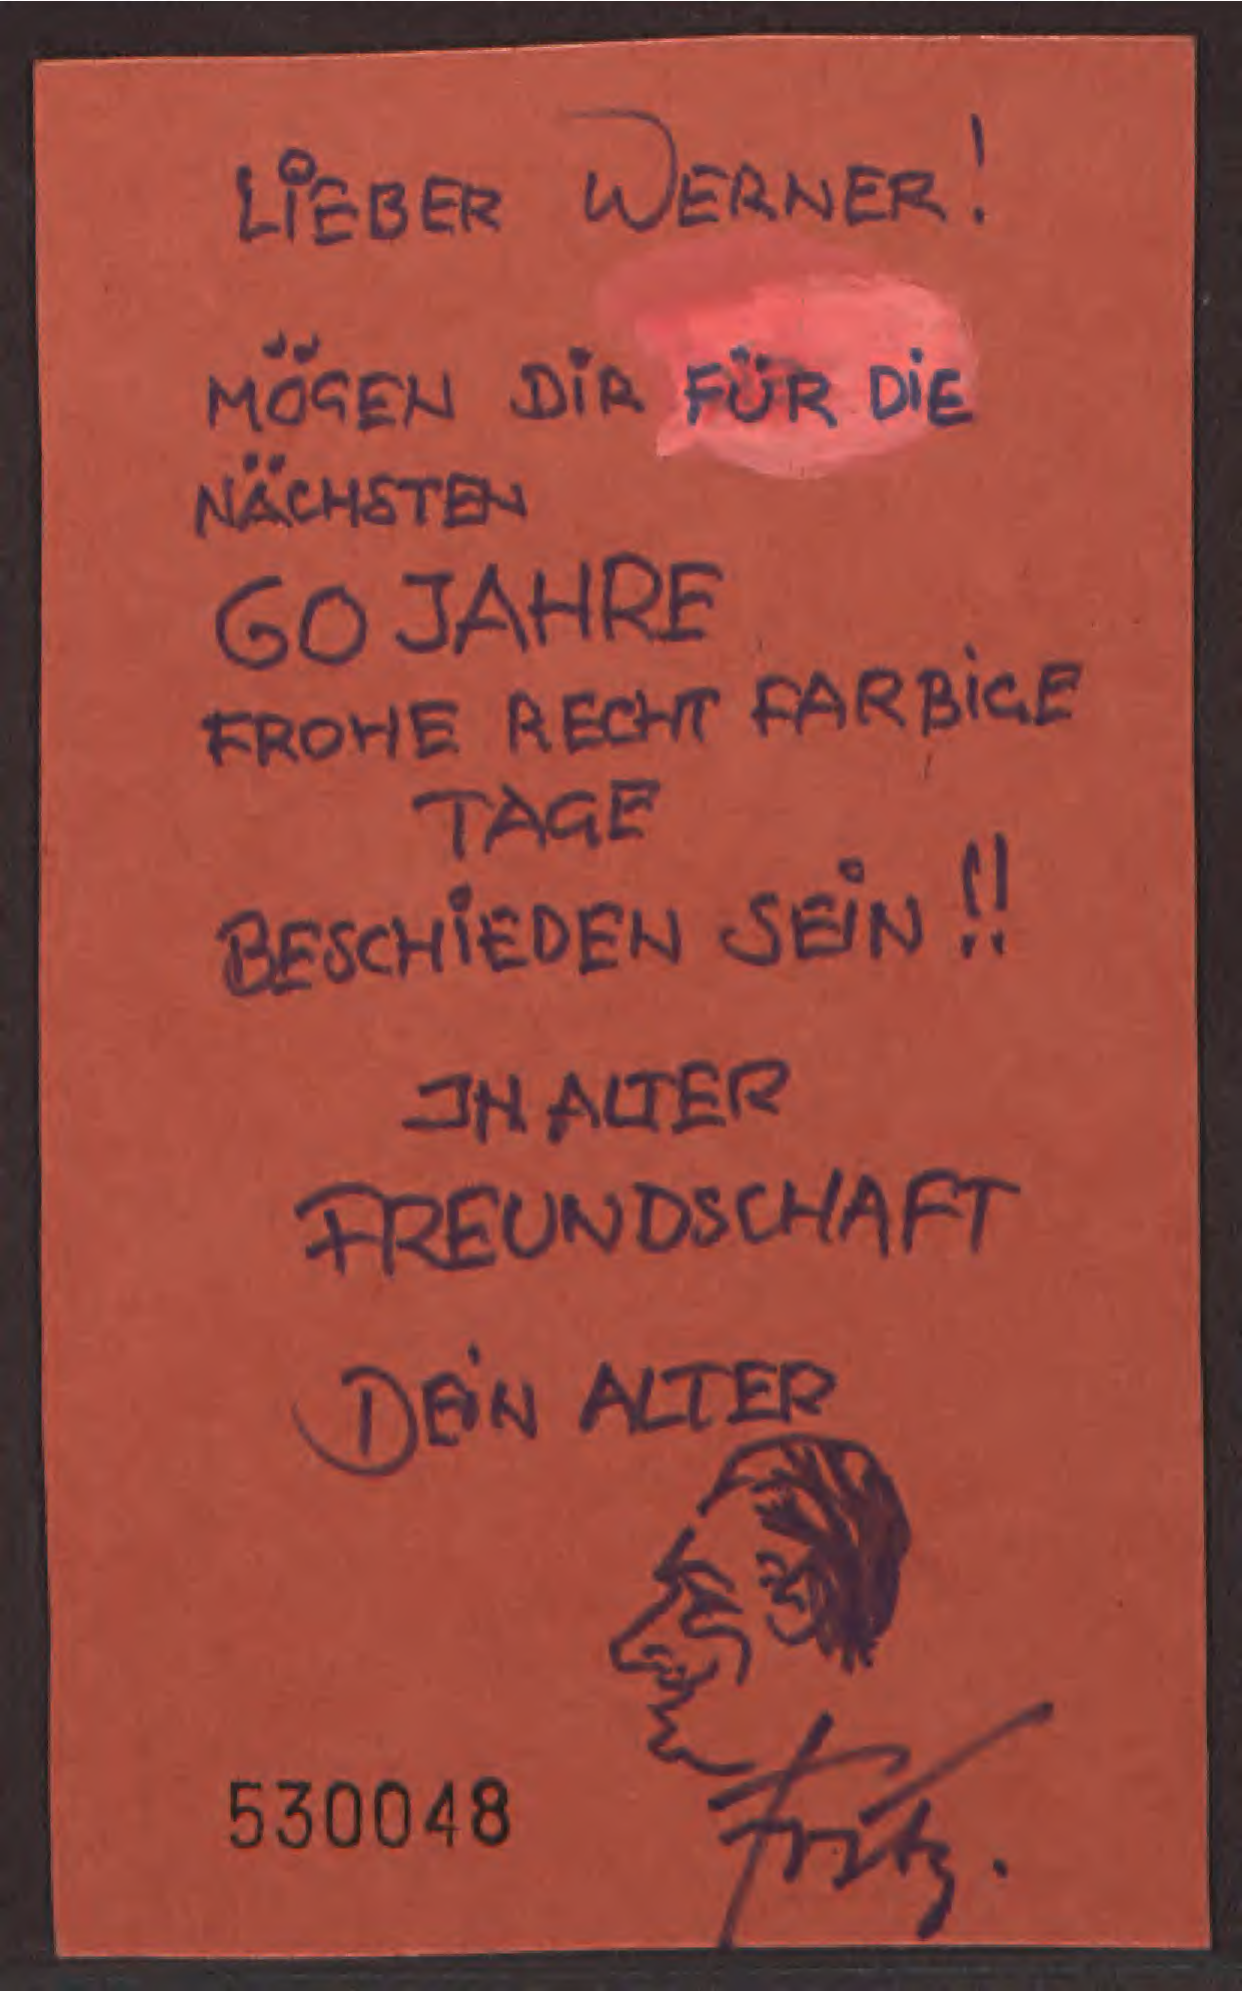 LiEBER WERNER!
MÖGEN DiR FÜR DiE
NÄCHSTEN
60 JAHRE
FROHE RECHT FARBiGE
TAGE
BESCHiEDEN SEiN!!
IN ALTER
FREUNDSCHAFT
DEiN ALTER
Fritz.
530048